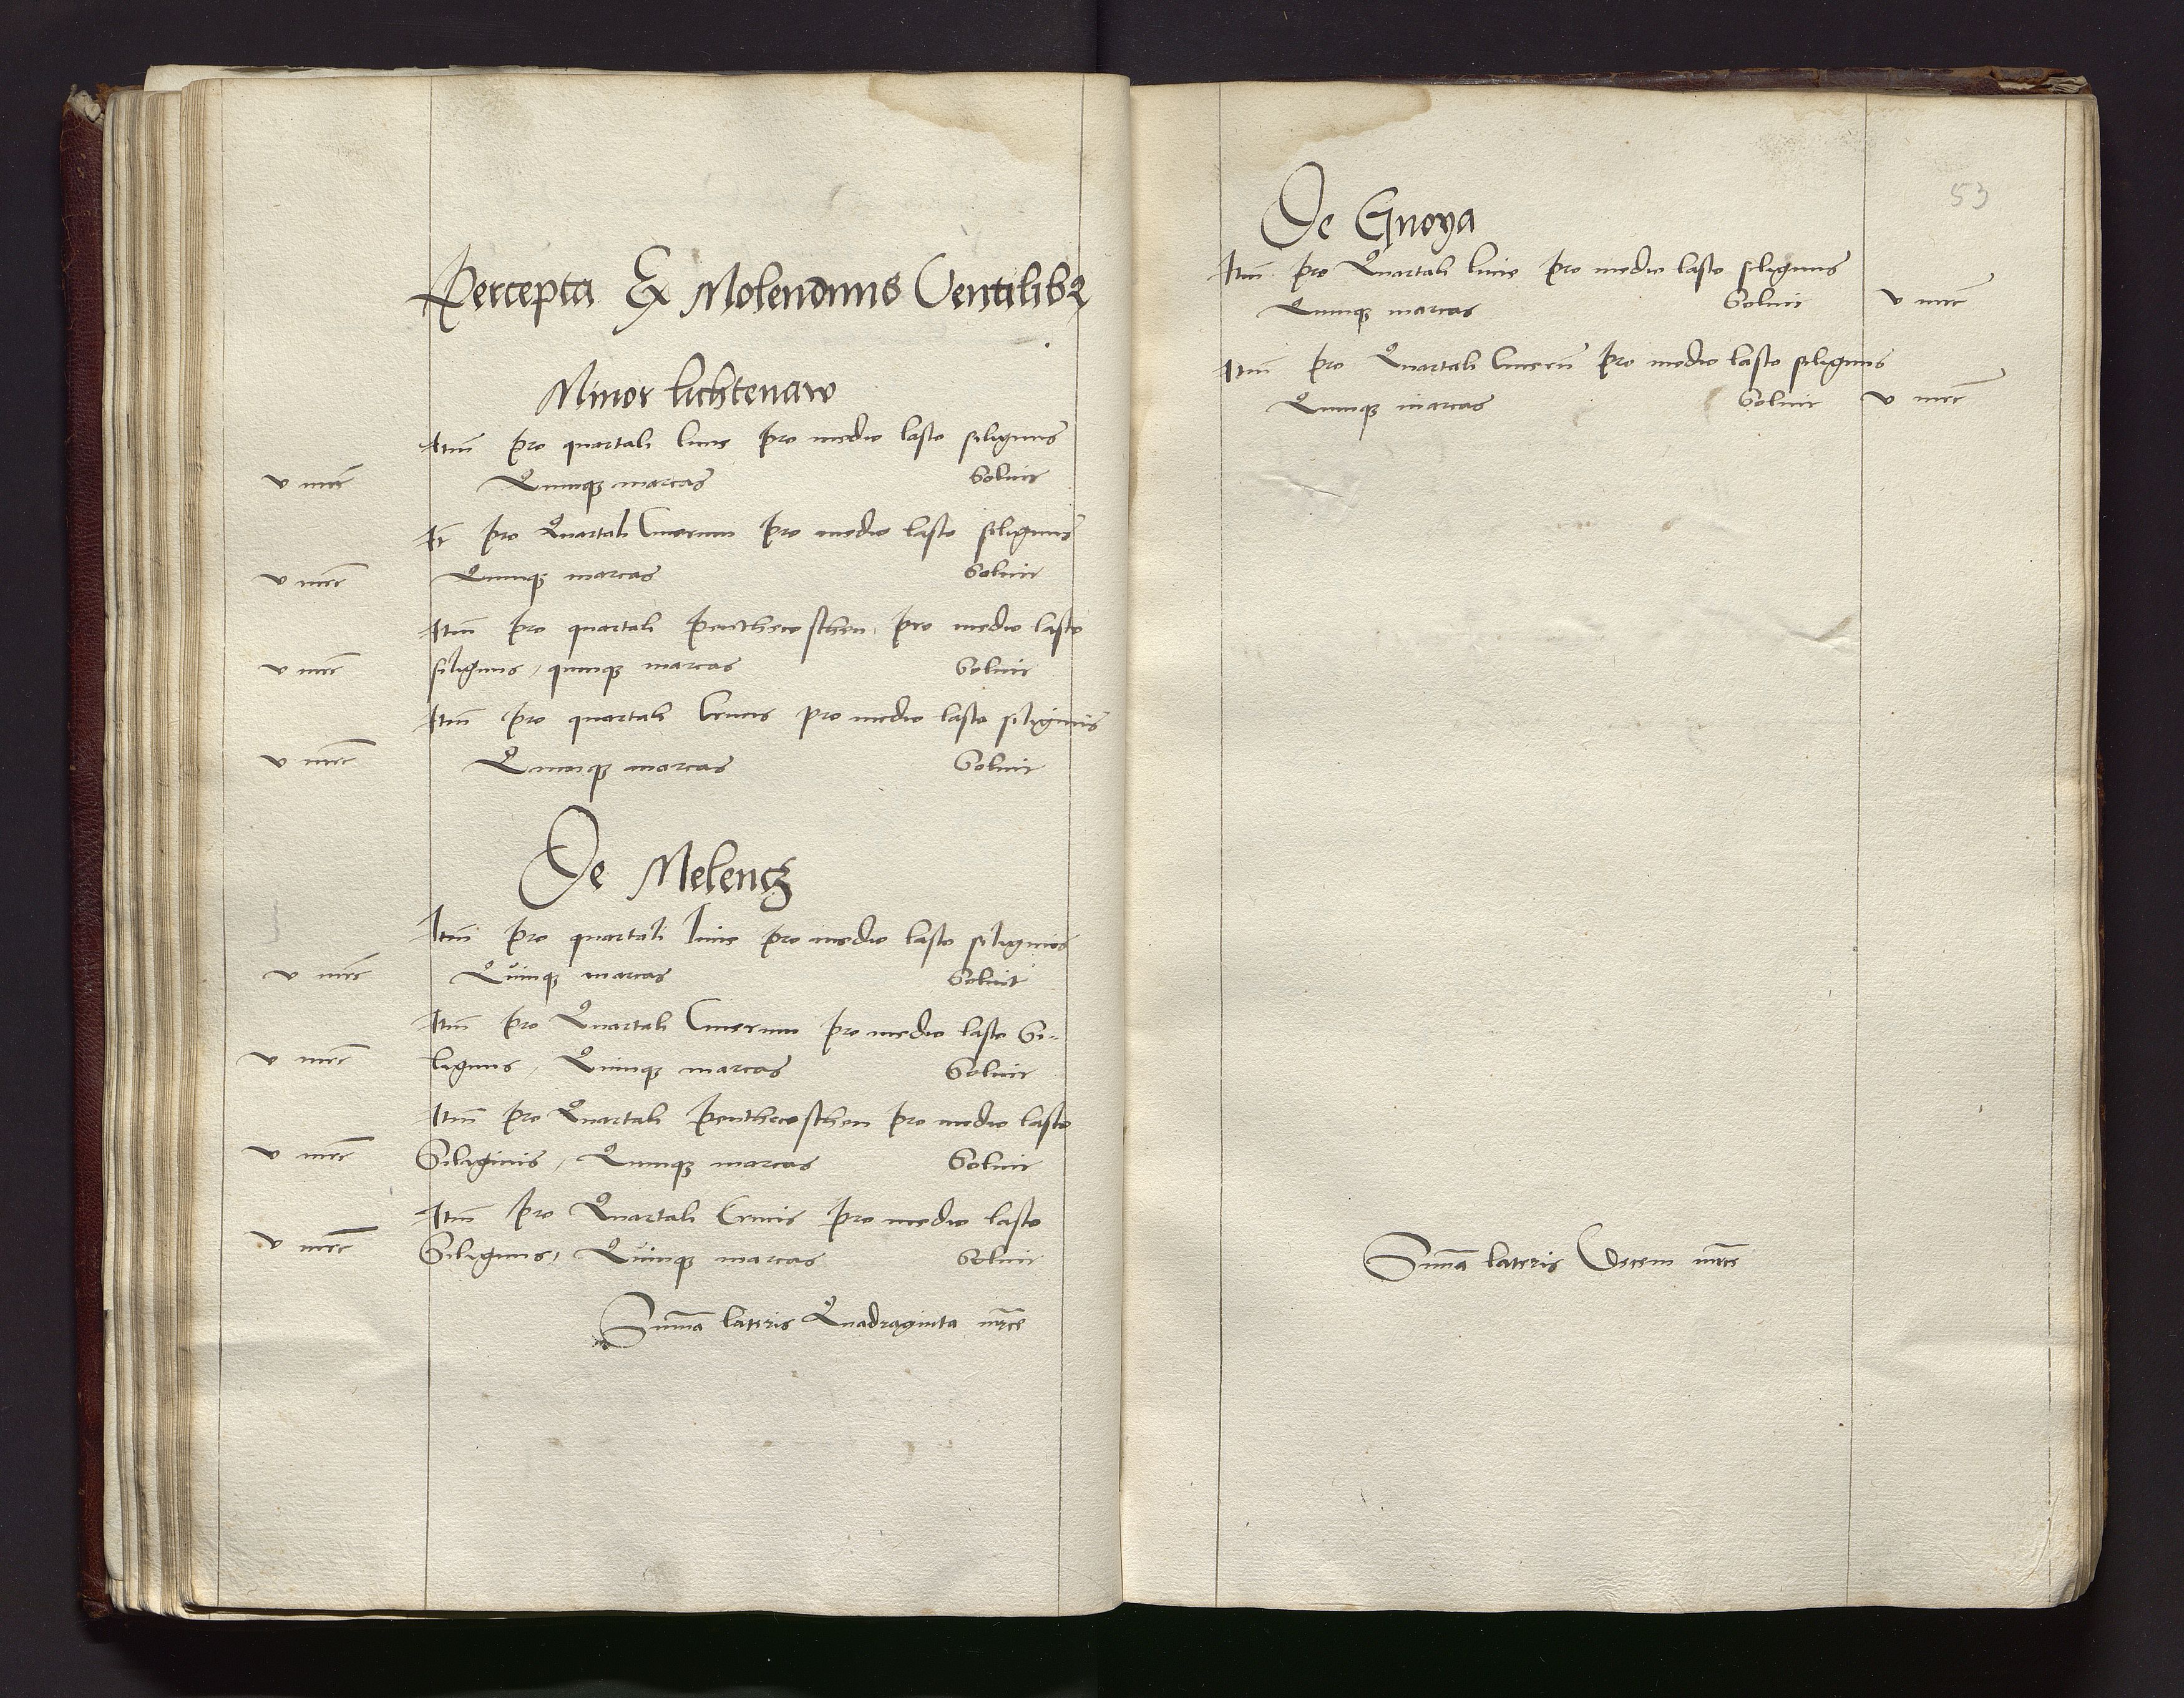 Percepta Ex Molendinis Ventilibꝫ
Minor lichtenaw
Itm̄ pro quartali lucie pro medio lasto siliginis
v mrc̄ Quinqꝫ marcas Soluit
It̄ pro Quartali Cinerum pro medio lasto siliginis
v mrc̄ Quinqꝫ marcas Soluit
Itm̄ pro quartali Penthecosthen pro medio lasto
v mrc̄ siliginis, quinqꝫ marcas Soluit
Itm̄ pro quartali Crucis pro medio lasto siliginis
v mrc̄ Quinqꝫ marcas Soluit
De Melencz
Itm̄ pro quartali lucie pro medio lasto siliginis
v mrc̄ Quinqꝫ marcas Soluit
Itm̄ pro Quartali Cinerum pro medio lasto Si-
v mrc̄ liginis, Quinqꝫ marcas Soluit
Itm̄ pro Quartali Penthecosthen pro medio lasto
v mrc̄ Siliginis, Quinqꝫ marcas Soluit
Itm̄ pro Quartali Crucis pro medio lasto
v mrc̄ Siliginis, Quinqꝫ marcas Soluit
Sum̄a lateris Quadraginta mr̄ce
53
De Gnoya
Itm̄ pro Quartali lucie pro medio lasto siliginis
Quinqꝫ marcas Soluit v mrc̄
Itm̄ pro Quartali Cinerū pro medio lasto siliginis
Quinqꝫ marcas Soluit v mrc̄
Sum̄a lateris Decem mr̄ce